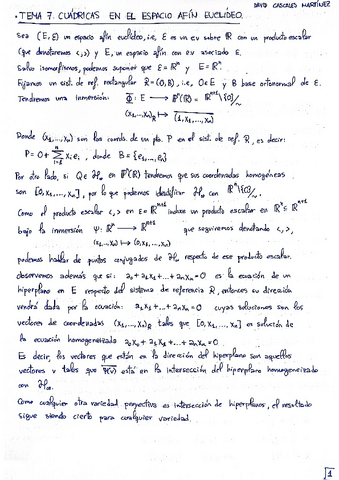 DAVID CASCALES MARTÍNEZ
• TEMA 7. CUÁDRICAS EN EL ESPACIO AFÍN EUCLÍDEO.
Sea (E, E) un espacio afín euclídeo, i.e, E es un ev sobre ℝ con un producto escalar
(que denotaremos <,>) y E, un espacio afín con ev asociado E.
Salvo isomorfismos, podemos suponer que E = ℝⁿ y E = ℝⁿ.
Fijamos un sist. de ref. rectangular R = (O, B), i.e, O∈E y B base ortonormal de E.
Tendremos una inmersión: Φ: E → Pⁿ(ℝ) = ℝⁿ⁺¹\{0}/~
(x₁,...,xₙ)_R ↦ (1, x₁,...,xₙ)
Donde (x₁,...,xₙ) son las coords. de un pto. P en el sist. de ref. R, es decir:
P = O + Σ xᵢeᵢ, donde B = {e₁,...,eₙ}
Por otro lado, si Q∈ℋ∞ en Pⁿ(ℝ) tendremos que sus coordenadas homogéneas
son [0, x₁,...,xₙ], por lo que podemos identificar ℋ∞ con ℝⁿ\{0}/~
Como el producto escalar <,> en E = ℝⁿ induce un producto escalar en ℝⁿ ≤ ℝⁿ⁺¹
bajo la inmersión Ψ: ℝⁿ → ℝⁿ⁺¹ que seguiremos denotando <,>,
(x₁,...,xₙ) ↦ (0, x₁,...,xₙ)
podemos hablar de puntos conjugados de ℋ∞ respecto de ese producto escalar.
observemos además que si: a₀ + a₁x₁ + ... + aₙxₙ = 0 es la ecuación de un
hiperplano en E respecto del sistema de referencia R, entonces su dirección
vendrá dada por la ecuación: a₁x₁ + ... + aₙxₙ = 0 cuyas soluciones son los
vectores de coordenadas (x₁,...,xₙ)_R tales que [0, x₁,...,xₙ] es solución de
la ecuación homogeneizada a₀x₀ + a₁x₁ + ... + aₙxₙ = 0.
Es decir, los vectores que están en la dirección del hiperplano son aquellos
vectores v tales que Ψ(v) está en la intersección del hiperplano homogeneizado
con ℋ∞.
Como cualquier otra variedad proyectiva es intersección de hiperplanos, el resultado
sigue siendo cierto para cualquier variedad.
1